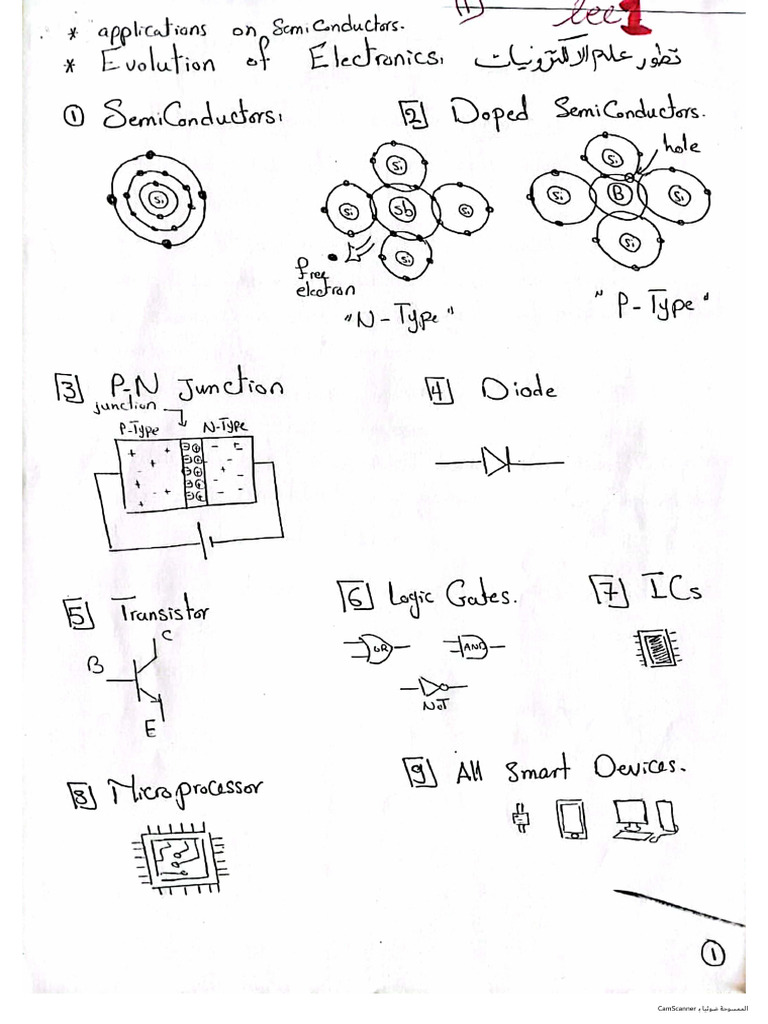 (1)
lec 1
* applications on SemiConductors.
* Evolution of Electronics, تطور علم الالكترونيات
① SemiConductors,
[2] Doped SemiConductors.
Si
Si
Si
Sb
Si
Si
free
electron
"N-Type"
hole
Si
Si
B
Si
Si
"P-Type"
[3] P-N Junction
junction
P-Type
N-Type
[4] Diode
[5] Transistor
C
B
E
[6] Logic Gates.
OR
AND
NOT
[7] ICs
[8] Microprocessor
[9] All Smart Devices.
①
CamScanner الممسوحة ضوئيا بـ